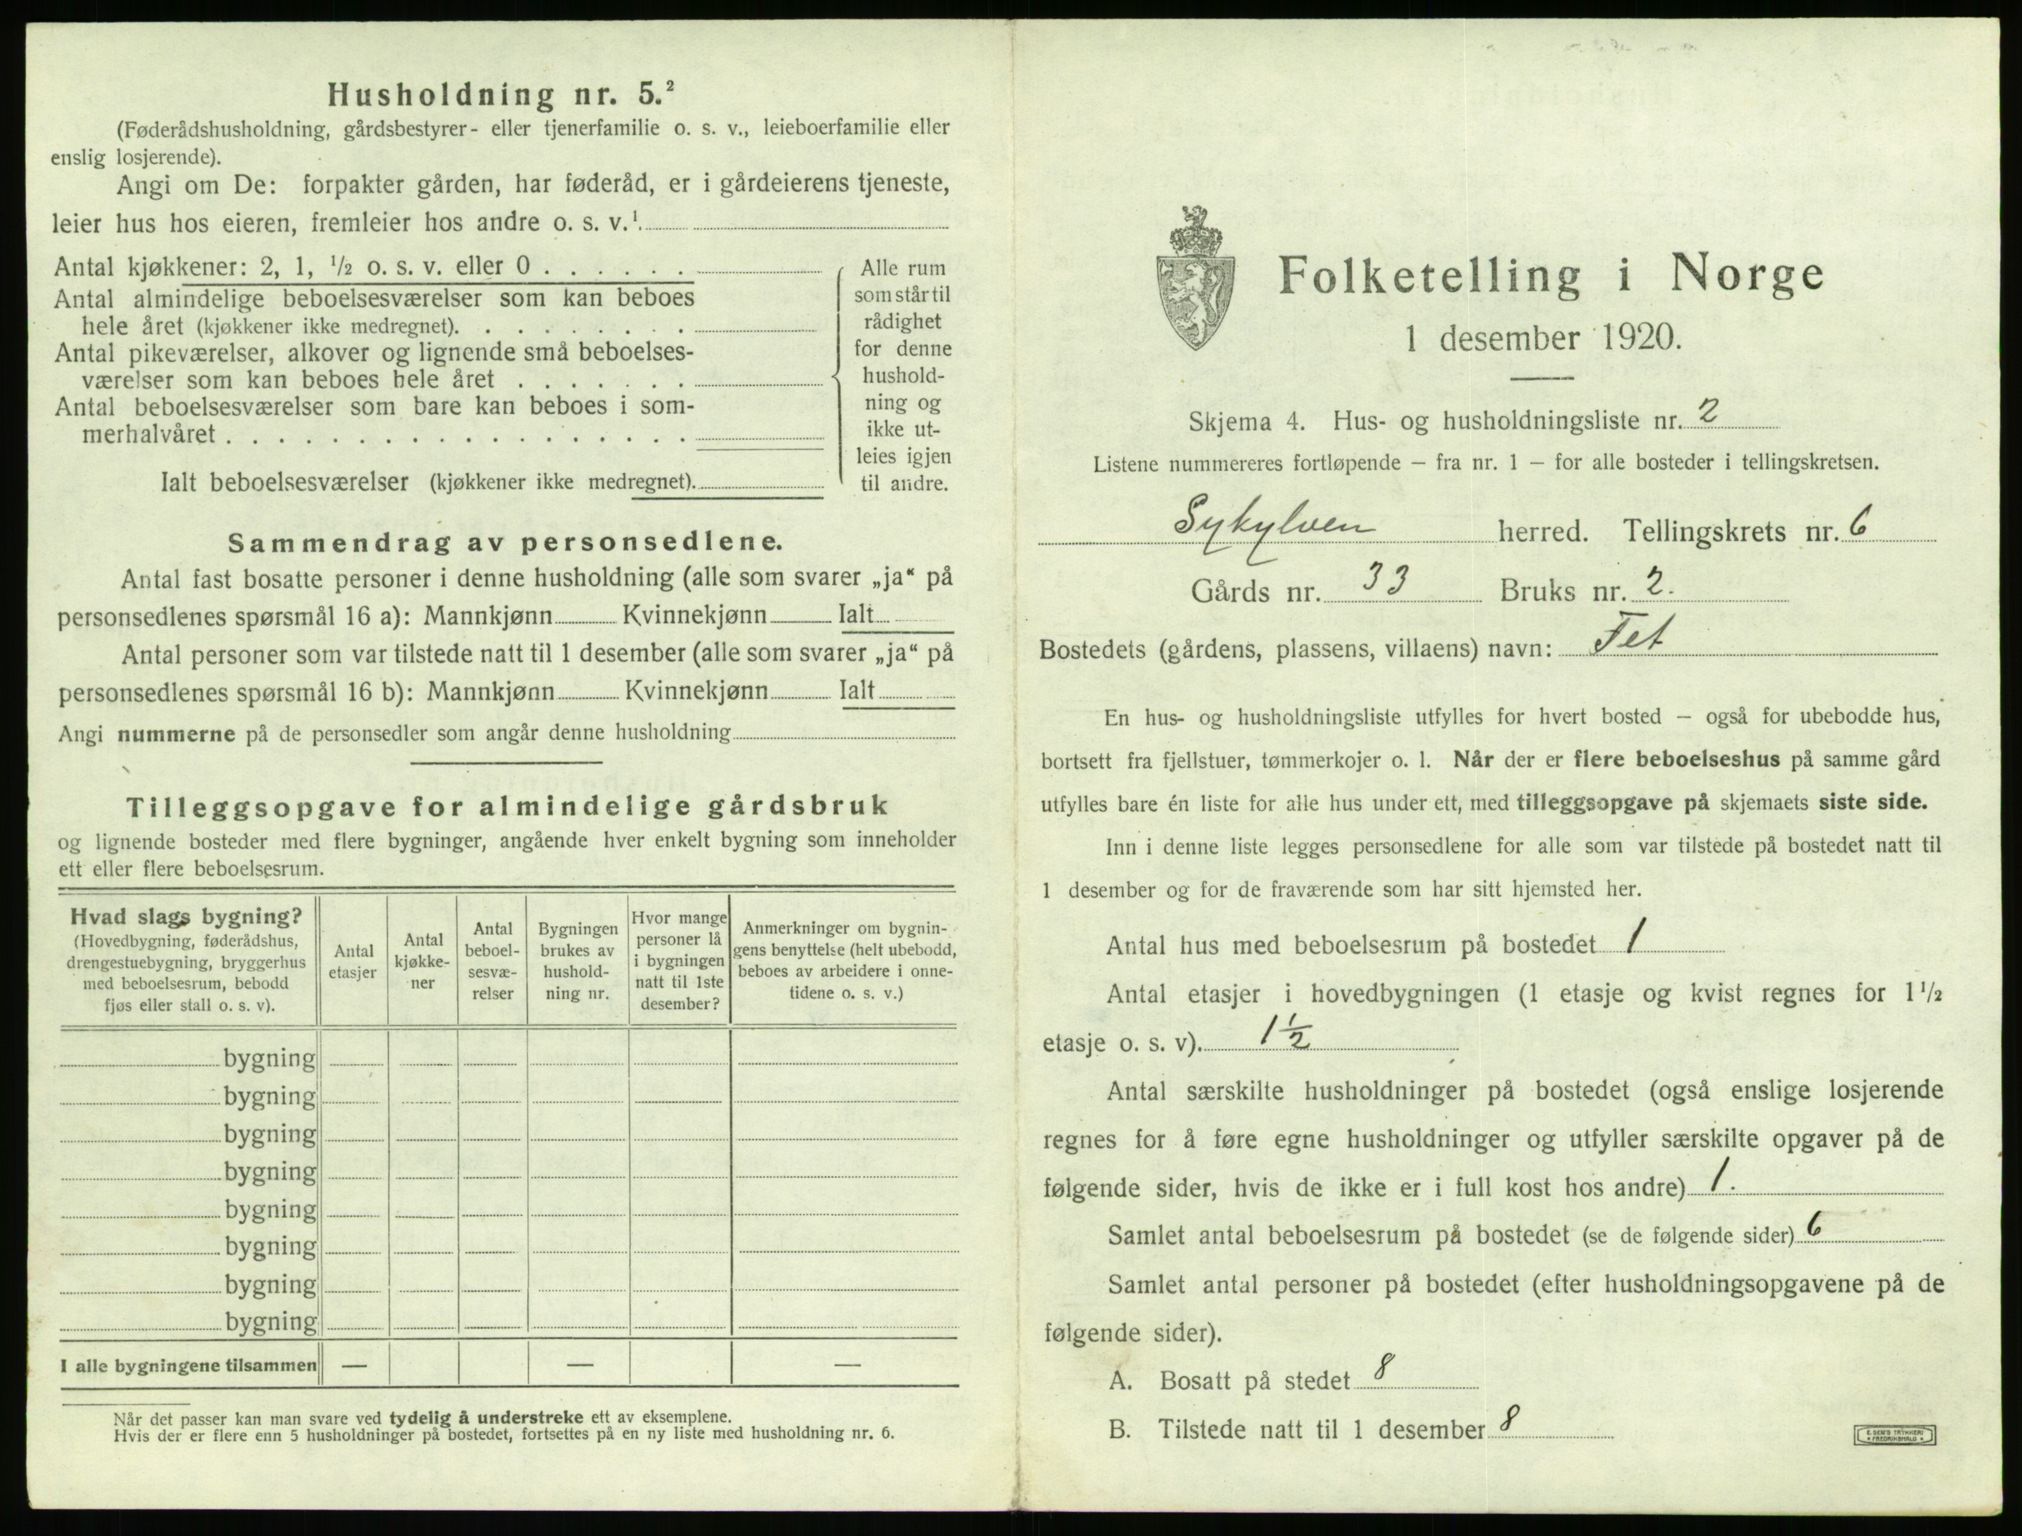 Husholdning nr. 5.²
(Føderådshusholdning, gårdsbestyrer- eller tjenerfamilie o. s. v., leieboerfamilie eller
enslig losjerende).
Angi om De: forpakter gården, har føderåd, er i gårdeierens tjeneste,
leier hus hos eieren, fremleier hos andre o. s. v.¹
Antal kjøkkener: 2, 1, ½ o. s. v. eller 0 . . . . . .
Antal almindelige beboelsesværelser som kan beboes
hele året (kjøkkener ikke medregnet). . . . . . . . .
Antal pikeværelser, alkover og lignende små beboelses-
værelser som kan beboes hele året . . . . . . .
Antal beboelsesværelser som bare kan beboes i som-
merhalvåret . . . . . . . . . . . . . . . . . .
Ialt beboelsesværelser (kjøkkener ikke medregnet).
Alle rum
som står til
rådighet
for denne
hushold-
ning og
ikke ut-
leies igjen
til andre.
Sammendrag av personsedlene.
Antal fast bosatte personer i denne husholdning (alle som svarer „ja“ på
personsedlenes spørsmål 16 a): Mannkjønn Kvinnekjønn Ialt
Antal personer som var tilstede natt til 1 desember (alle som svarer „ja“ på
personsedlenes spørsmål 16 b): Mannkjønn Kvinnekjønn Ialt
Angi nummerne på de personsedler som angår denne husholdning
Tilleggsopgave for almindelige gårdsbruk
og lignende bosteder med flere bygninger, angående hver enkelt bygning som inneholder
ett eller flere beboelsesrum.
Hvad slags bygning?
(Hovedbygning, føderådshus,
drengestuebygning, bryggerhus
med beboelsesrum, bebodd
fjøs eller stall o. s. v).
Antal
etasjer
Antal
kjøkke-
ner
Antal
beboel-
sesvæ-
relser
Bygningen
brukes av
hushold-
ning nr.
Hvor mange
personer lå
i bygningen
natt til 1ste
desember?
Anmerkninger om bygnin-
gens benyttelse (helt ubebodd,
beboes av arbeidere i onne-
tidene o. s. v.)
bygning
bygning
bygning
bygning
bygning
bygning
bygning
bygning
I alle bygningene tilsammen — — —
Når det passer kan man svare ved tydelig å understreke ett av eksemplene.
Hvis der er flere enn 5 husholdninger på bostedet, fortsettes på en ny liste med husholdning nr. 6.
Folketelling i Norge
1 desember 1920.
Skjema 4. Hus- og husholdningsliste nr. 2
Listene nummereres fortløpende — fra nr. 1 — for alle bosteder i tellingskretsen.
Sykylven herred. Tellingskrets nr. 6
Gårds nr. 33 Bruks nr. 2.
Bostedets (gårdens, plassens, villaens) navn: Fet
En hus- og husholdningsliste utfylles for hvert bosted — også for ubebodde hus,
bortsett fra fjellstuer, tømmerkojer o. l. Når der er flere beboelseshus på samme gård
utfylles bare én liste for alle hus under ett, med tilleggsopgave på skjemaets siste side.
Inn i denne liste legges personsedlene for alle som var tilstede på bostedet natt til
1 desember og for de fraværende som har sitt hjemsted her.
Antal hus med beboelsesrum på bostedet 1
Antal etasjer i hovedbygningen (1 etasje og kvist regnes for 1½
etasje o. s. v). 1½
Antal særskilte husholdninger på bostedet (også enslige losjerende
regnes for å føre egne husholdninger og utfyller særskilte opgaver på de
følgende sider, hvis de ikke er i full kost hos andre) 1.
Samlet antal beboelsesrum på bostedet (se de følgende sider) 6
Samlet antal personer på bostedet (efter husholdningsopgavene på de
følgende sider).
A. Bosatt på stedet 8
B. Tilstede natt til 1 desember 8